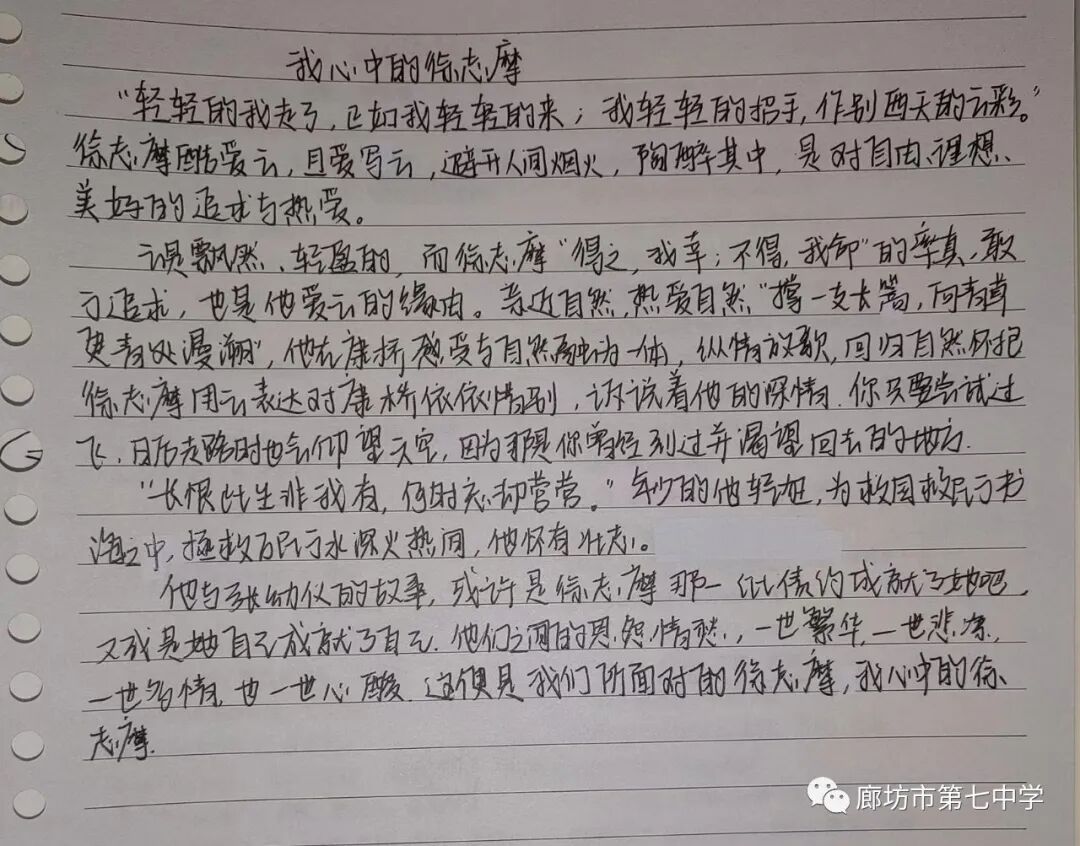 我心中的徐志摩
“轻轻的我走了,正如我轻轻的来;我轻轻的招手,作别西天的云彩。”
徐志摩酷爱云,且爱写云,避开人间烟火,陶醉其中,是对自由、理想、
美好的追求与热爱。
云是飘然、轻盈的,而徐志摩“得之,我幸;不得,我命”的率真,敢
于追求,也是他爱云的缘由。亲近自然,热爱自然“撑一支长篙,向青草
更青处漫溯”,他在康桥感受与自然融为一体,纵情放歌,回归自然怀抱
徐志摩用云表达对康桥依依惜别,诉说着他的深情.你只要尝试过
飞,日后走路时也会仰望天空,因为那是你曾经到过并渴望回去的地方.
“长恨此生非我有,何时忘却营营。”年少的他轻狂,为救国救民于书
海之中,拯救万民于水深火热间,他怀有壮志。
他与张幼仪的故事,或许是徐志摩那一纸债约成就了她吧,
又或是她自己成就了自己.他们之间的恩怨情愁,一世繁华,一世悲凉,
一世多情,也一世心酸.这便是我们所面对的徐志摩,我心中的徐
志摩.
廊坊市第七中学